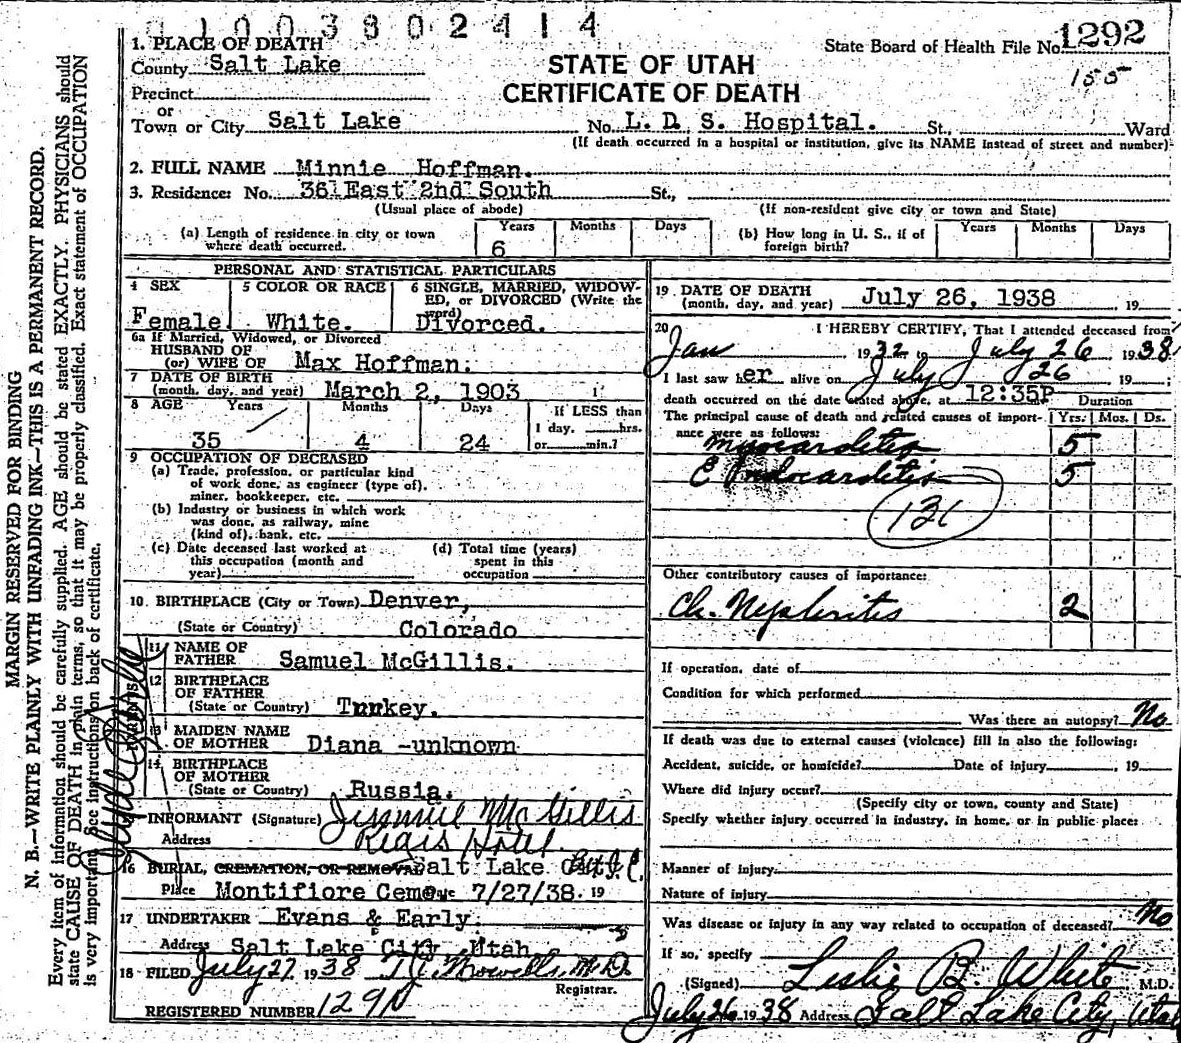 01003802414
1. PLACE OF DEATH
County Salt Lake
Precinct
or
Town or City Salt Lake
STATE OF UTAH
CERTIFICATE OF DEATH
State Board of Health File No. 1292
155
No. L. D. S. Hospital. St., Ward
(If death occurred in a hospital or institution, give its NAME instead of street and number)
2. FULL NAME Minnie Hoffman.
3. Residence: No. 361 East 2nd South St.,
(Usual place of abode) (If non-resident give city or town and State)
(a) Length of residence in city or town where death occurred. Years 6 Months Days
(b) How long in U. S., if of foreign birth? Years Months Days
PERSONAL AND STATISTICAL PARTICULARS
4 SEX
Female
5 COLOR OR RACE
White.
6 SINGLE, MARRIED, WIDOWED, or DIVORCED (Write the word)
Divorced.
6a If Married, Widowed, or Divorced
HUSBAND OF
(or) WIFE OF Max Hoffman.
7 DATE OF BIRTH
(month, day, and year) March 2, 1903
8 AGE Years Months Days If LESS than
1 day, hrs.
35 4 24 or min.?
9 OCCUPATION OF DECEASED
(a) Trade, profession, or particular kind
of work done, as engineer (type of),
miner, bookkeeper, etc.
(b) Industry or business in which work
was done, as railway, mine
(kind of), bank, etc.
(c) Date deceased last worked at
this occupation (month and
year)
(d) Total time (years)
spent in this
occupation
10. BIRTHPLACE (City or Town) Denver,
(State or Country) Colorado
PARENTS
11 NAME OF
FATHER Samuel McGillis.
12 BIRTHPLACE
OF FATHER
(State or Country) Turkey.
13 MAIDEN NAME
OF MOTHER Diana -unknown
14 BIRTHPLACE
OF MOTHER
(State or Country) Russia.
INFORMANT (Signature) Jimmie McGillis
Address Regis Hotel
16 BURIAL, CREMATION, OR REMOVAL Salt Lake City
Place Montifiore Ceme. Date 7/27/38. 19
17 UNDERTAKER Evans & Early.
Address Salt Lake City Utah
18 FILED July 27 1938 M.D.
Registrar.
REGISTERED NUMBER
19 DATE OF DEATH
(month, day, and year) July 26, 1938 19
20 I HEREBY CERTIFY, That I attended deceased from
Jan 1932 to July 26 1938
I last saw her alive on July 26 19 ;
death occurred on the date stated above, at 12:35P
The principal cause of death and related causes of importance were as follows: Duration Yrs. Mos. Ds.
Myocarditis 5
Endocarditis 5
131
Other contributory causes of importance:
Ch. Nephritis 2
If operation, date of
Condition for which performed
Was there an autopsy? No
If death was due to external causes (violence) fill in also the following:
Accident, suicide, or homicide? Date of injury , 19
Where did injury occur?
(Specify city or town, county and State)
Specify whether injury occurred in industry, in home, or in public place:
Manner of injury
Nature of injury
Was disease or injury in any way related to occupation of deceased? No
If so, specify
(Signed) Leslie B. White M.D.
July 26 1938 Address Salt Lake City, Utah
MARGIN RESERVED FOR BINDING
N. B.—WRITE PLAINLY WITH UNFADING INK—THIS IS A PERMANENT RECORD.
Every item of information should be carefully supplied. AGE should be stated EXACTLY. PHYSICIANS should
state CAUSE OF DEATH in plain terms, so that it may be properly classified. Exact statement of OCCUPATION
is very important. See instructions on back of certificate.